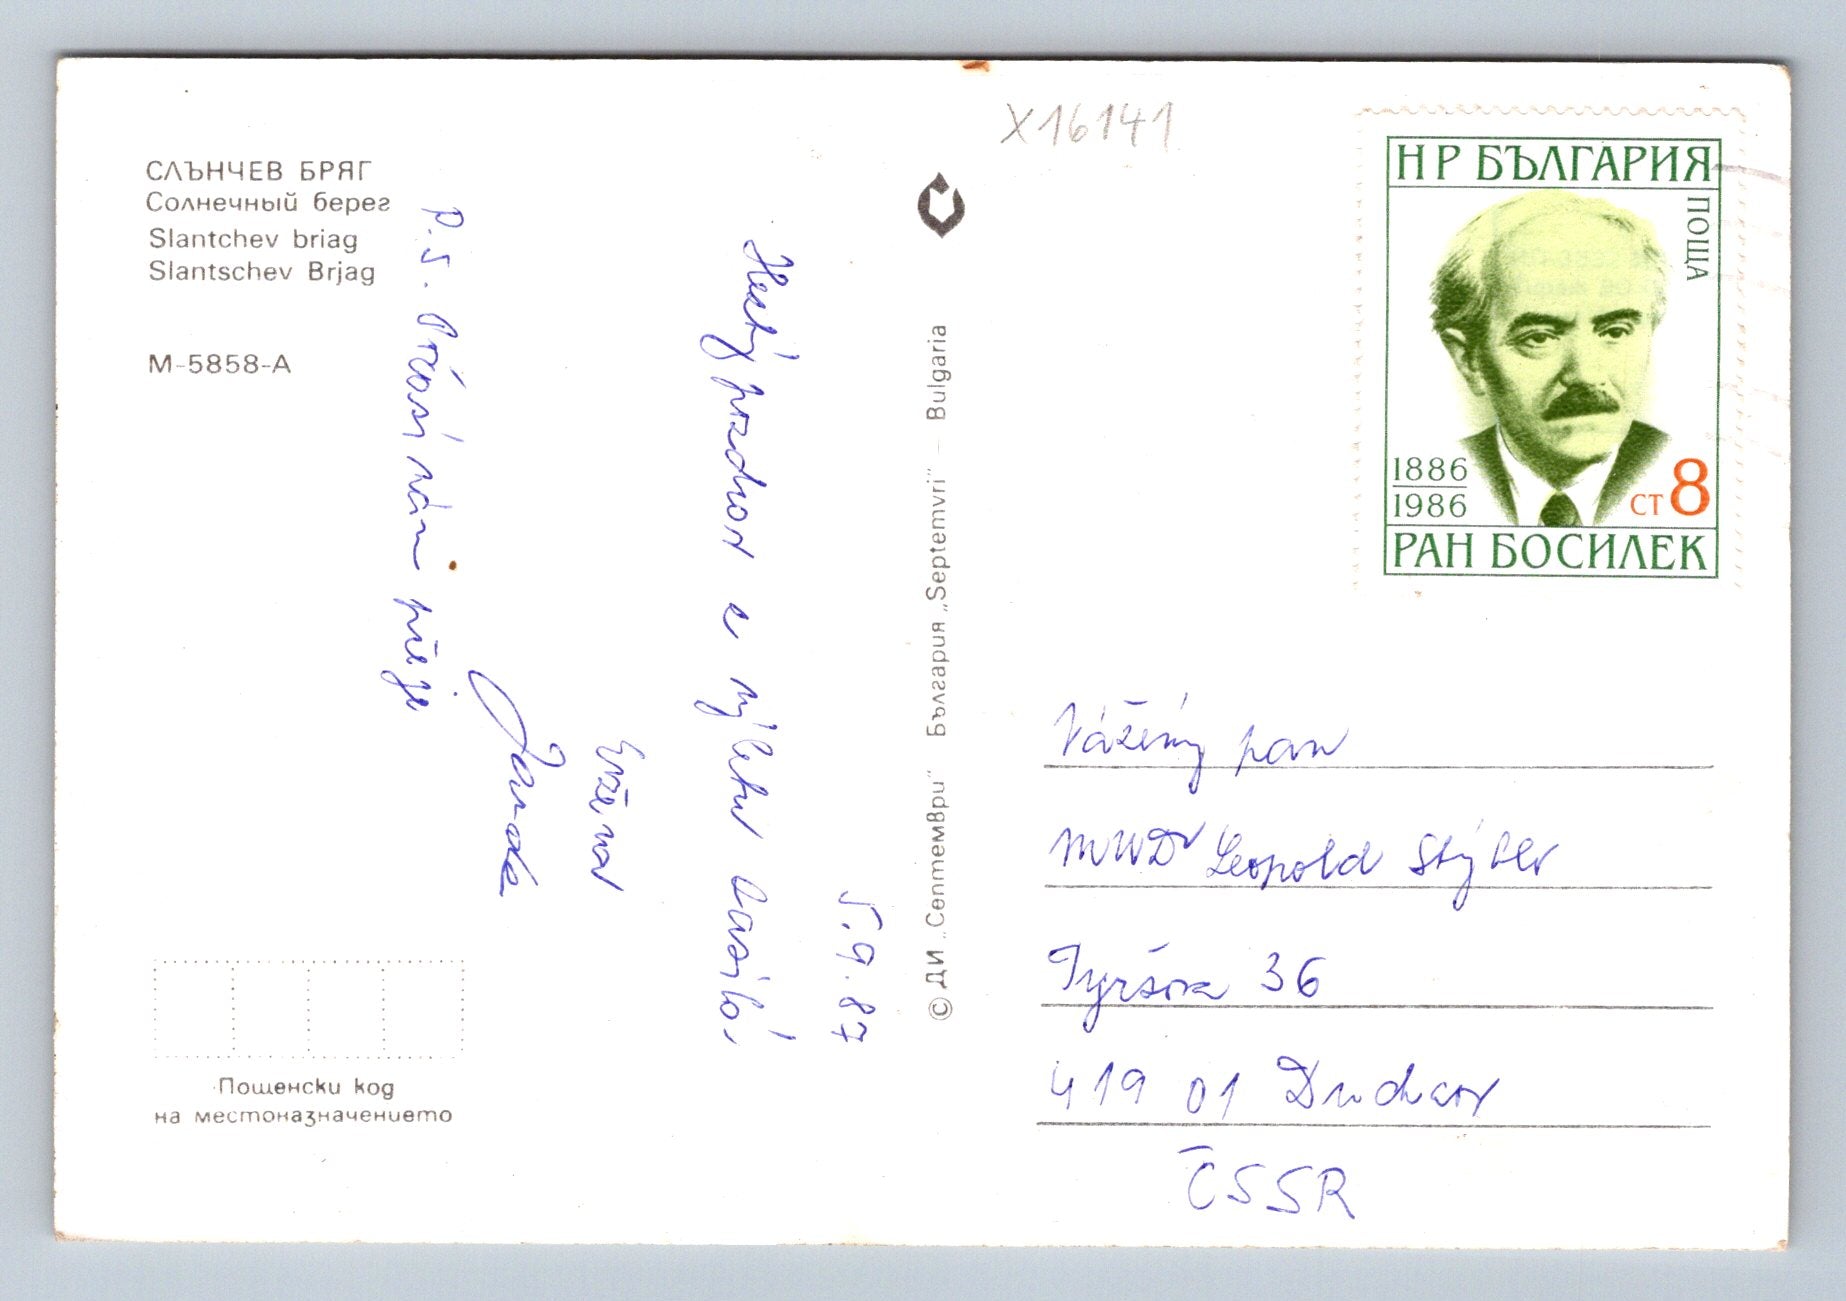 СЛЪНЧЕВ БРЯГ
Солнечный берег
Slantchev briag
Slantschev Brjag
М-5858-А
5.9.87
Hezký pozdrav z výletu
Evžena
Jarda
P.S. Počasí nám přeje
Пощенски код
на местоназначението
© ДИ „Септември“ България „Septemvri“ — Bulgaria
X16141
НР БЪЛГАРИЯ
ПОЩА
1886
1986
СТ 8
РАН БОСИЛЕК
Vážený pan
MUDr Leopold Stýblr
Tyršova 36
419 01 Duchcov
ČSSR